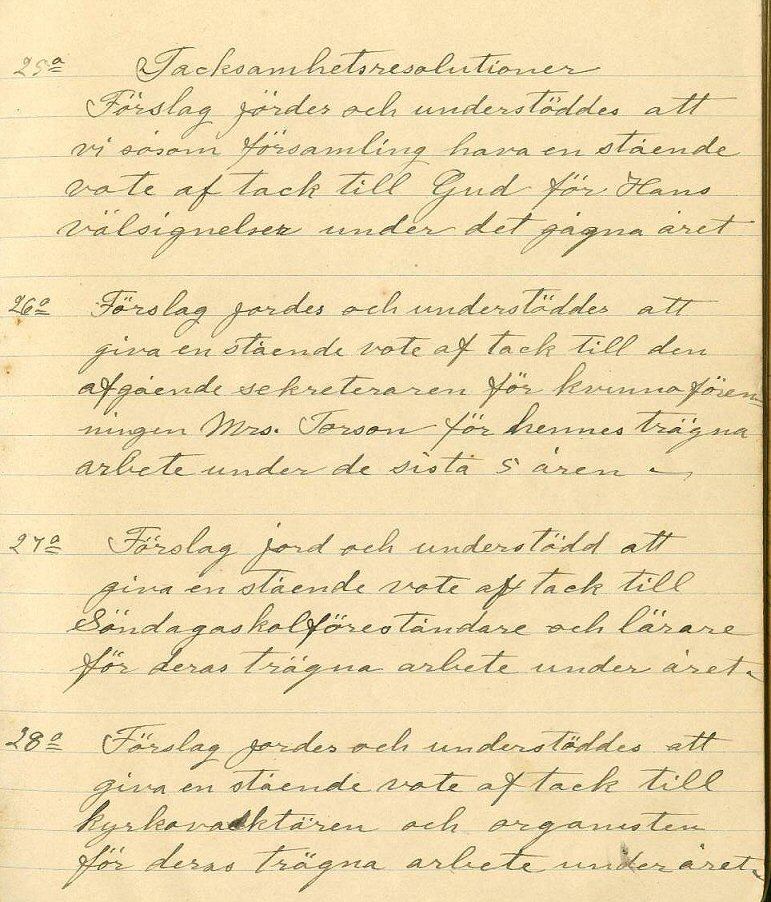 25º Tacksamhetsresolutioner
Förslag jördes och understöddes att
vi såsom församling hava en stående
vote af tack till Gud för Hans
välsignelser under det gågna året
26º Förslag jordes och understöddes att
giva en stående vote af tack till den
afgående sekreteraren för kvinnofören-
ningen Mrs. Torson för hennes trägna
arbete under de sista 5 åren
27º Förslag jord och understödd att
giva en stående vote af tack till
Söndagaskolföreståndare och lärare
för deras trägna arbete under året
28º Förslag jordes och understöddes att
giva en stående vote af tack till
kyrkovaektären och organisten
för deras trägna arbete under året